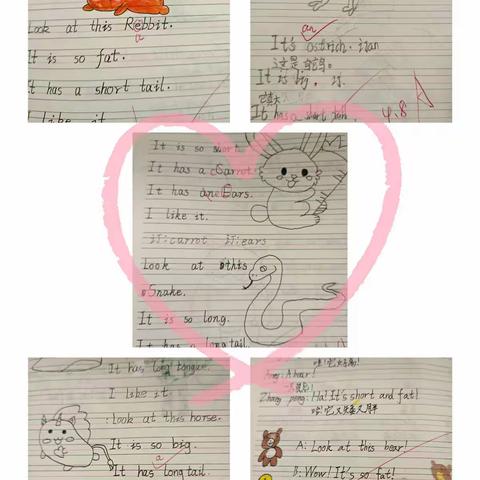 Look at this Rebbit.
a
It is so fat.
It has a short tail.
I like it
an
It's ostrich.
这是鸵鸟。
It is big,
它真大
It has a short
4.8 A
It is so short.
It has a carrot.
It has Ears.
I like it.
订:carrot 订:ears
Look at this
Snake.
It is so long.
It has a long tail.
It has long tongue.
I like it.
Look at this horse.
It is so big.
a
It has long tail.
A bear!
Zhang peng: Ha! It's short and fat!
哈!它又矮又胖
A: Look at this bear!
B: Wow! It's so fat!